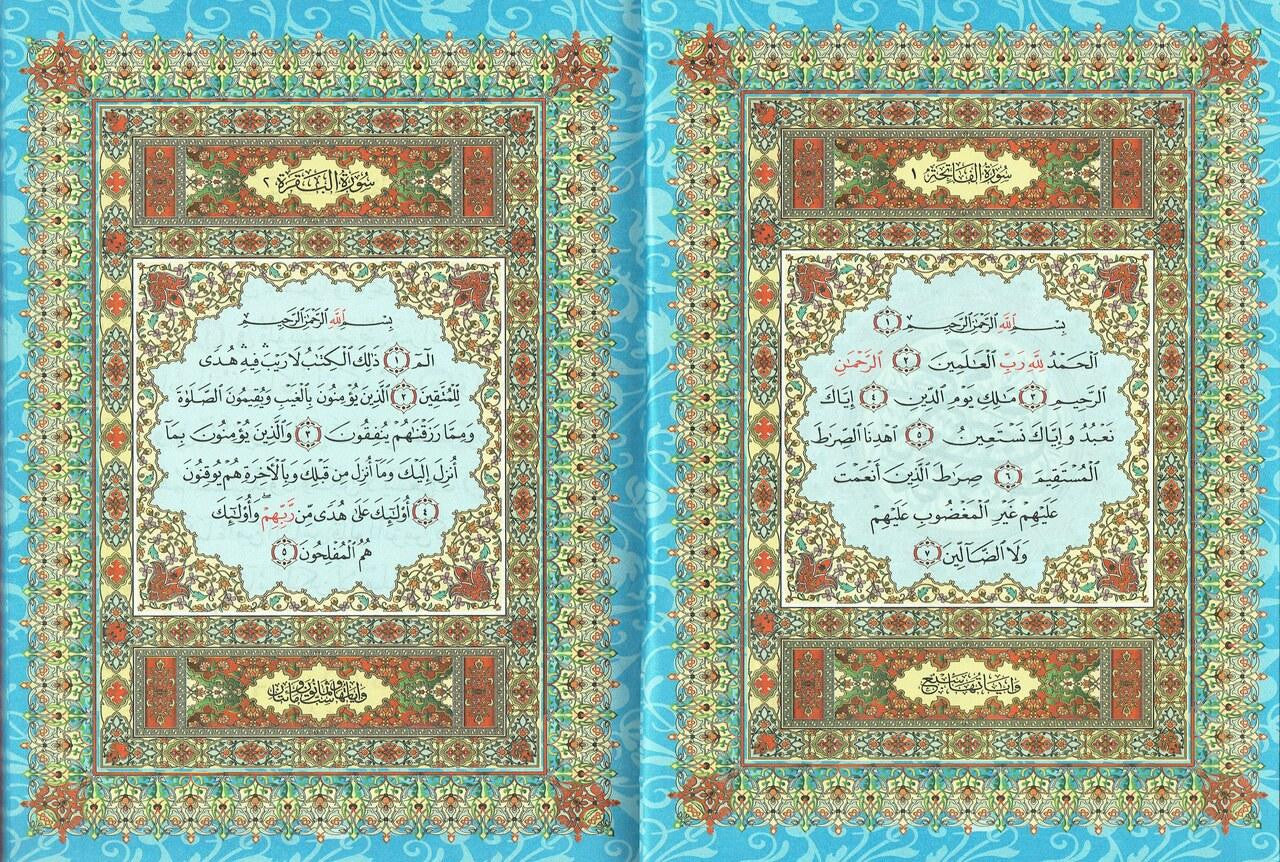 سُورَةُ الفَاتِحَةِ ١
بِسْمِ ٱللَّهِ ٱلرَّحْمَٰنِ ٱلرَّحِيمِ ١
ٱلْحَمْدُ لِلَّهِ رَبِّ ٱلْعَٰلَمِينَ ٢ ٱلرَّحْمَٰنِ
ٱلرَّحِيمِ ٣ مَٰلِكِ يَوْمِ ٱلدِّينِ ٤ إِيَّاكَ
نَعْبُدُ وَإِيَّاكَ نَسْتَعِينُ ٥ ٱهْدِنَا ٱلصِّرَٰطَ
ٱلْمُسْتَقِيمَ ٦ صِرَٰطَ ٱلَّذِينَ أَنْعَمْتَ
عَلَيْهِمْ غَيْرِ ٱلْمَغْضُوبِ عَلَيْهِمْ
وَلَا ٱلضَّآلِّينَ ٧
وَآيَاتُهَا سَبْعٌ
سُورَةُ البَقَرَةِ ٢
بِسْمِ ٱللَّهِ ٱلرَّحْمَٰنِ ٱلرَّحِيمِ
الٓمٓ ١ ذَٰلِكَ ٱلْكِتَٰبُ لَا رَيْبَ ۛ فِيهِ ۛ هُدًى
لِّلْمُتَّقِينَ ٢ ٱلَّذِينَ يُؤْمِنُونَ بِٱلْغَيْبِ وَيُقِيمُونَ ٱلصَّلَوٰةَ
وَمِمَّا رَزَقْنَٰهُمْ يُنفِقُونَ ٣ وَٱلَّذِينَ يُؤْمِنُونَ بِمَآ
أُنزِلَ إِلَيْكَ وَمَآ أُنزِلَ مِن قَبْلِكَ وَبِٱلْأَخِرَةِ هُمْ يُوقِنُونَ
٤ أُو۟لَٰٓئِكَ عَلَىٰ هُدًى مِّن رَّبِّهِمْ ۖ وَأُو۟لَٰٓئِكَ
هُمُ ٱلْمُفْلِحُونَ ٥